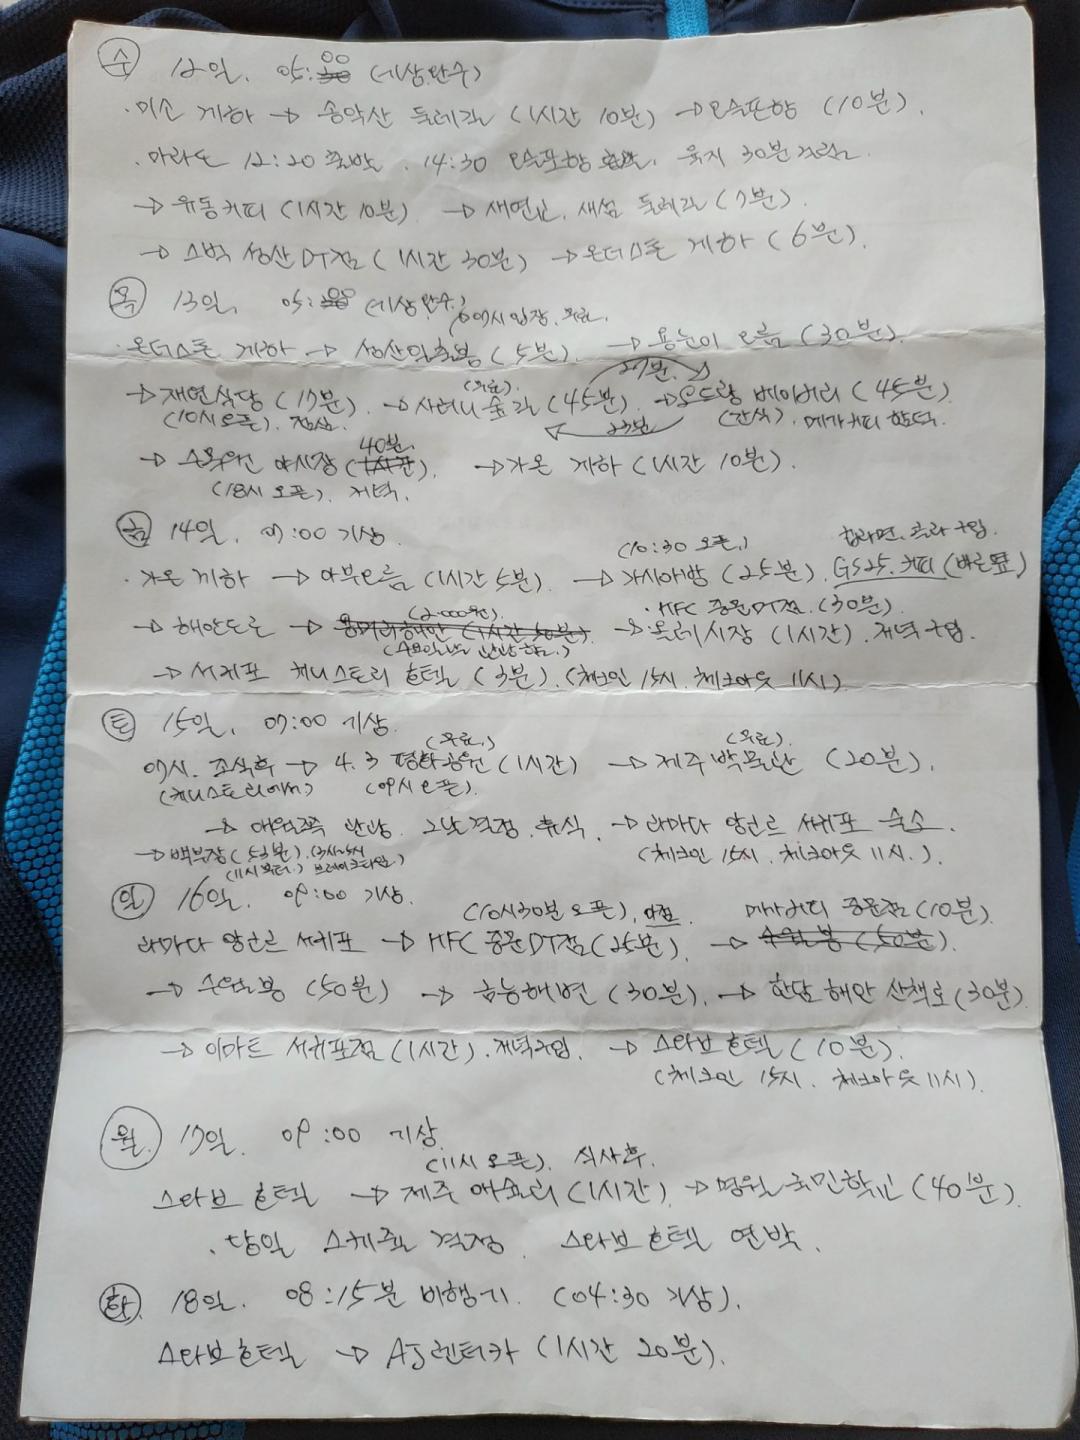 수 12일. 05:00 (세상만수)
· 미소 게하 → 송악산 둘레길 (1시간 10분) → 모슬포항 (10분).
· 마라도 12:20 출발. 14:30 모슬포항 출발. 육지 30분 걸림.
→ 유동커피 (1시간 10분). → 새연교. 새섬 둘레길 (7분).
→ 스벅 성산DT점 (1시간 30분) → 온더스톤 게하 (6분).
목 13일. 05:00 (세상만수)
07시입장. 무료.
· 온더스톤 게하 → 성산일출봉 (5분). → 용눈이 오름 (30분).
27분.
(무료).
→ 재연식당 (17분). → 사려니숲길 (45분). → 오드랑 베이버리 (45분)
(10시오픈). 점심. 23분 (간식). 메가커피 함덕.
40분.
→ 수목원 야시장 (1시간). → 가온 게하 (1시간 10분).
(18시 오픈). 저녁.
금 14일. 07:00 기상.
(10:30 오픈.) 컵라면. 콜라 구입.
· 가온 게하 → 아부오름 (1시간 5분). → 가시아방 (25분). GS25. 커피 (바로옆)
(2000원). · HFC 중문DT점. (30분).
→ 해안도로 → 용머리해안 (1시간 50분). → 올레시장 (1시간). 저녁구입.
→ 서귀포 케니스토리 호텔 (3분). (체크인 15시. 체크아웃 11시).
토 15일. 07:00 기상.
(무료.) (무료).
07시. 조식후 → 4.3 평화공원 (1시간) → 제주박물관 (20분).
(케니스토리에서) (09시 오픈).
→ 애월쪽 난방. 그날결정. 휴식. → 라마다 앙코르 서귀포 숙소.
→ 백부장 (53분). (3시~5시 (체크인 15시. 체크아웃 11시.).
(11시부터.) 브레이크타임)
일 16일. 09:00 기상.
(10시30분 오픈). 아점. 메가커피 중문점 (10분).
라마다 앙코르 서귀포 → HFC 중문DT점 (25분). → 수월봉 (50분).
→ 수월봉 (50분) → 금능해변 (30분). → 한담 해안 산책로 (30분).
→ 이마트 서귀포점 (1시간). 저녁구입. → 스타브 호텔 (10분).
(체크인 15시. 체크아웃 11시).
월 17일. 09:00 기상.
(11시 오픈). 식사후.
스타브 호텔 → 제주 애월리 (1시간) → 명월 국민학교 (40분).
. 당일 스케쥴 결정. 스타브 호텔 연박.
화 18일. 08:15분 비행기. (04:30 기상).
스타브호텔 → AJ렌터카 (1시간 20분).